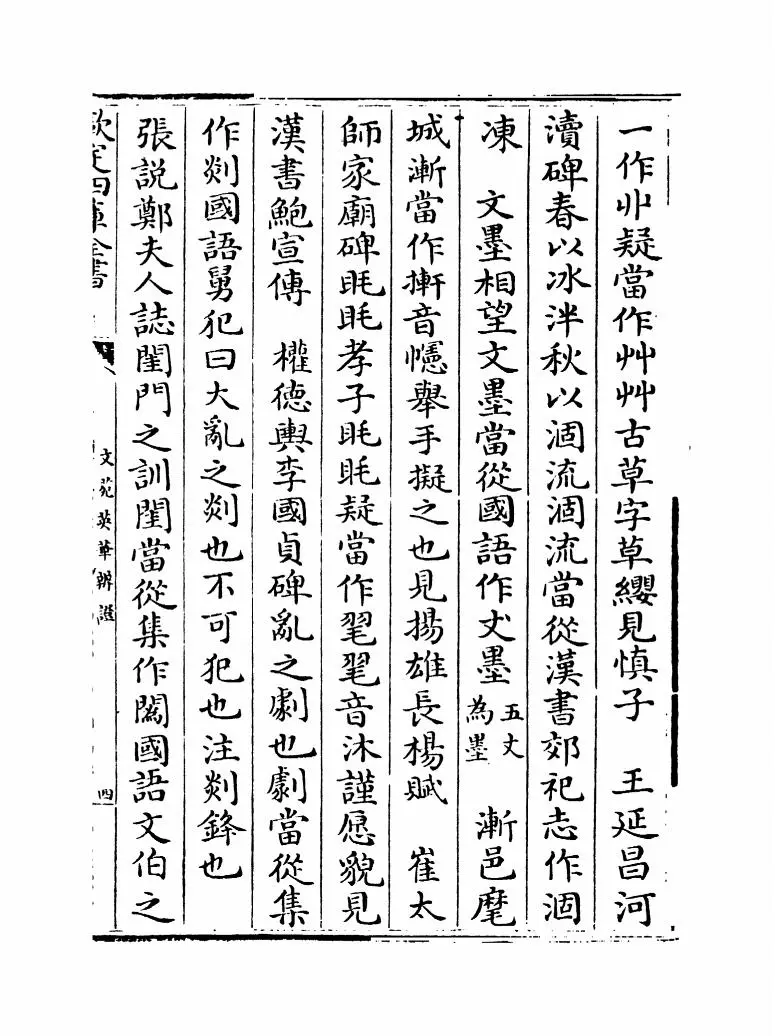 一作丱疑當作艸艸古草字草纓見慎子　王延昌河
瀆碑春以冰泮秋以涸流涸流當從漢書郊祀志作涸
凍　文墨相望文墨當從國語作丈墨五丈為墨　漸邑麾
城漸當作摲音幰舉手擬之也見揚雄長楊賦　崔太
師家廟碑眊眊孝子眊眊疑當作毣毣音沐謹愿貌見
漢書鮑宣傳　權德輿李國貞碑亂之劇也劇當從集
作剡國語舅犯曰大亂之剡也不可犯也注剡鋒也
張說鄭夫人誌閨門之訓閨當從集作闈國語文伯之
欽定四庫全書
文苑英華辨證
四